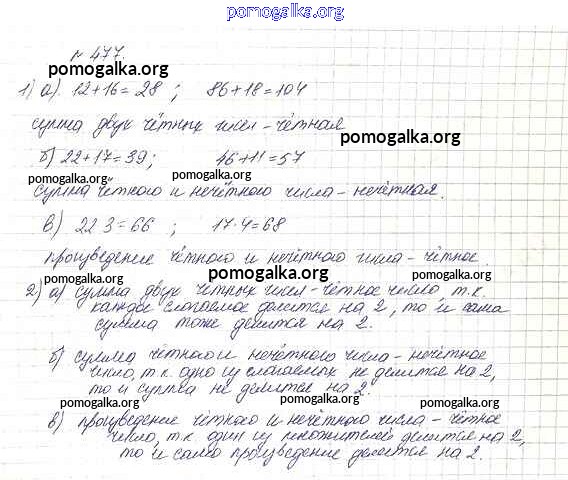 pomogalka.org
№ 477.
pomogalka.org
1) а). 12+16=28 ; 86+18=104
pomogalka.org
сумма двух чётных чисел - чётная
pomogalka.org
б) 22+17=39; 46+11=57
pomogalka.org pomogalka.org
сумма чётного и нечётного числа - нечётная.
pomogalka.org
в) 22·3=66 ; 17·4=68
произведение чётного и нечётного числа - чётное.
pomogalka.org pomogalka.org pomogalka.org
2) а) сумма двух четных чисел - чётное число, т.к.
каждое слагаемое делится на 2, то и сама
сумма тоже делится на 2.
pomogalka.org
б) сумма чётного и нечётного числа - нечётное
число, т.к. одно из слагаемых не делится на 2,
то и сумма не делится на 2.
pomogalka.org pomogalka.org pomogalka.org
в) произведение четного и нечётного числа - чётное
число, т.к. один из множителей делится на 2,
то и само произведение делится на 2.